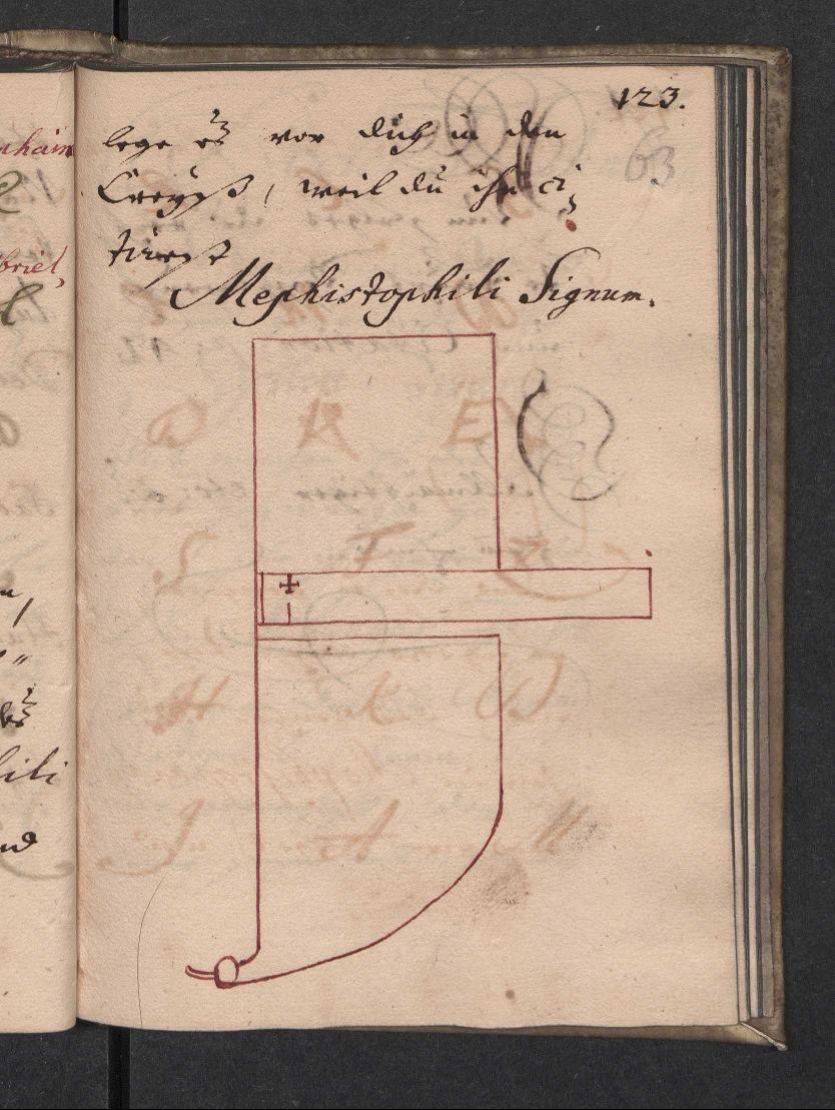 123.
63
lege es vor dich in den
Creÿß, weil du ihn ci-
tirest
Mephistophili Signum.